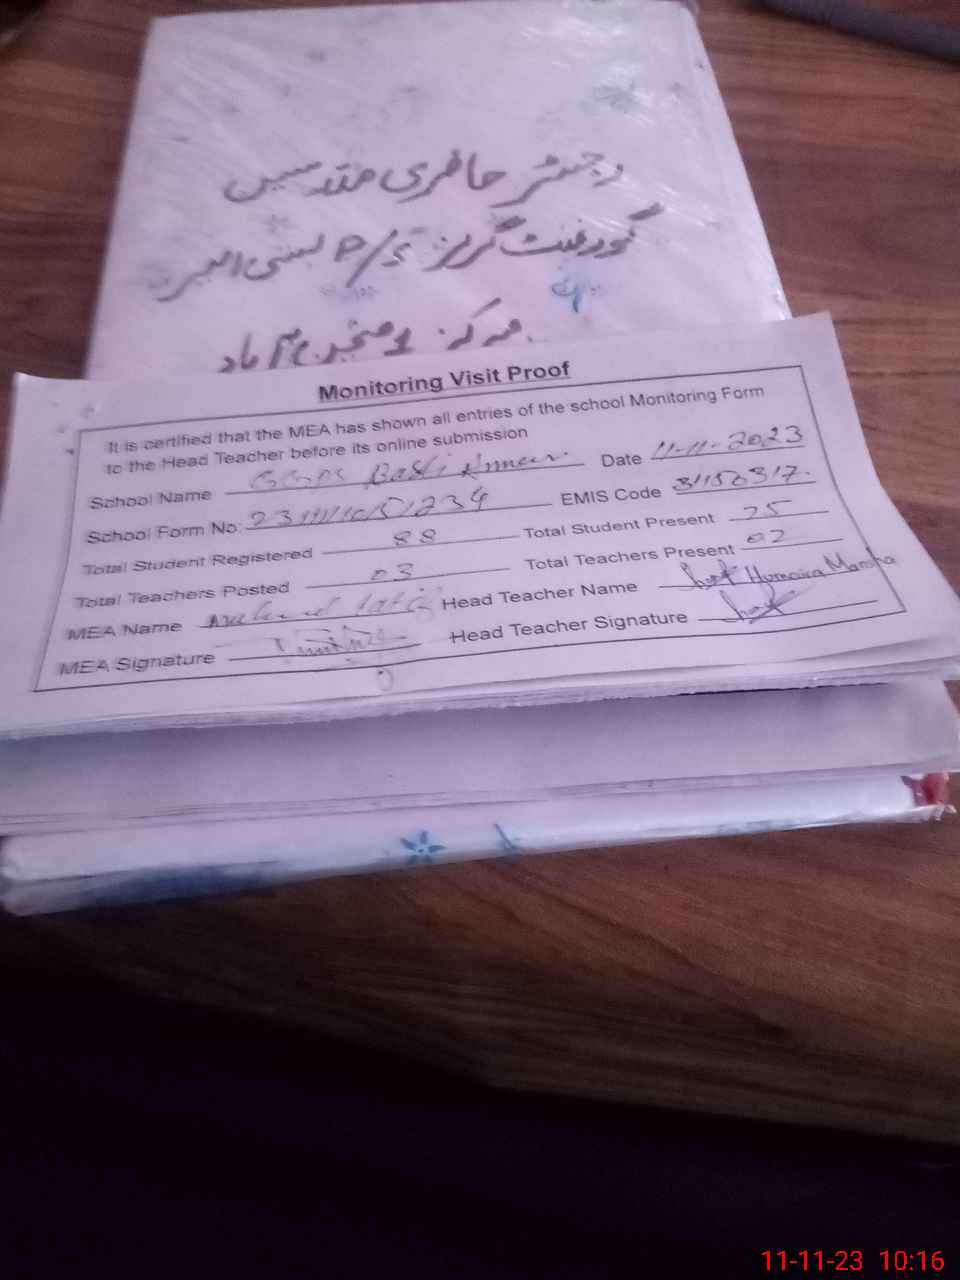 رجسٹر حاضری مدرسین
گورنمنٹ گرلز P/S بستی امیر
مرکز
Monitoring Visit Proof
It is certified that the MEA has shown all entries of the school Monitoring Form
to the Head Teacher before its online submission
School Name GGPS Basti Ameer Date 11-11-2023
School Form No: EMIS Code 31150317
Total Student Registered 88 Total Student Present 75
Total Teachers Posted 03 Total Teachers Present 02
MEA Name Head Teacher Name Humaira Mansha
MEA Signature Head Teacher Signature
11-11-23 10:16